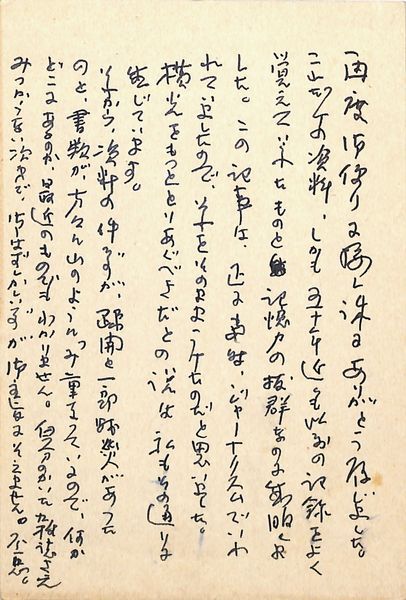 再度御便りに接し誠にありがとう存じました。
これだけの資料、しかも五十年近くも以前の記録をよく
覚えていたものと記憶力の抜群なのに感服しま
した。この記事は、正に当時、ジャーナリズムでいわ
れていましたので、それをそのまま一ケたのだと思いました。
横光をもっととりあぐべきだとの説は私もその通りに
感じています。
それから、資料の件ですが、疎開と一部戦災があった
のと、書類が方々に山のようにつみ重なっているので、何が
どこにあるのか、最近のものでもわかりません。自分のかいた雑誌さえ
みつからない次第で、御はずかしいですが御返事にそえません。不悪。